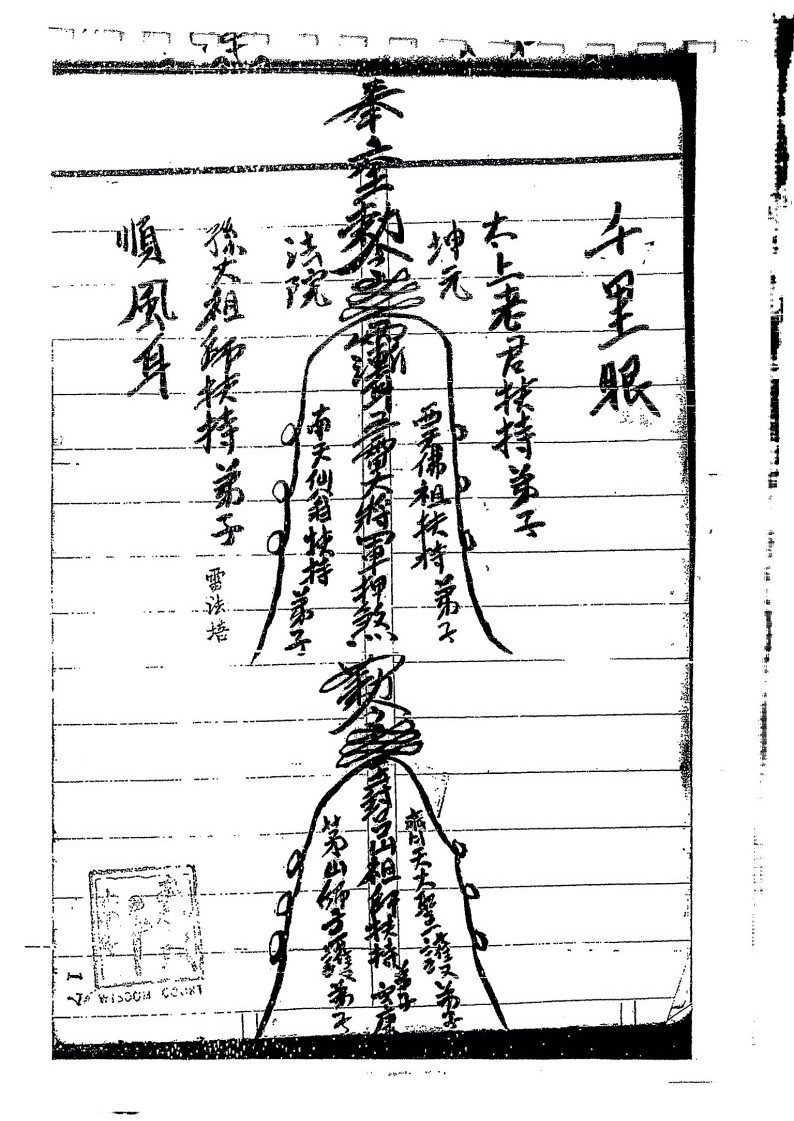 千里眼
太上老君扶持弟子
坤元
奉
勅
三寶大將軍押煞
西天佛祖扶持弟子
南天仙翁扶持弟子
法院
孫大祖師扶持弟子
雷法培
順風耳
勅
封呂山祖師扶持弟子安康
齊天大聖護弟子
茅山師主護弟子
WISDOM COURT